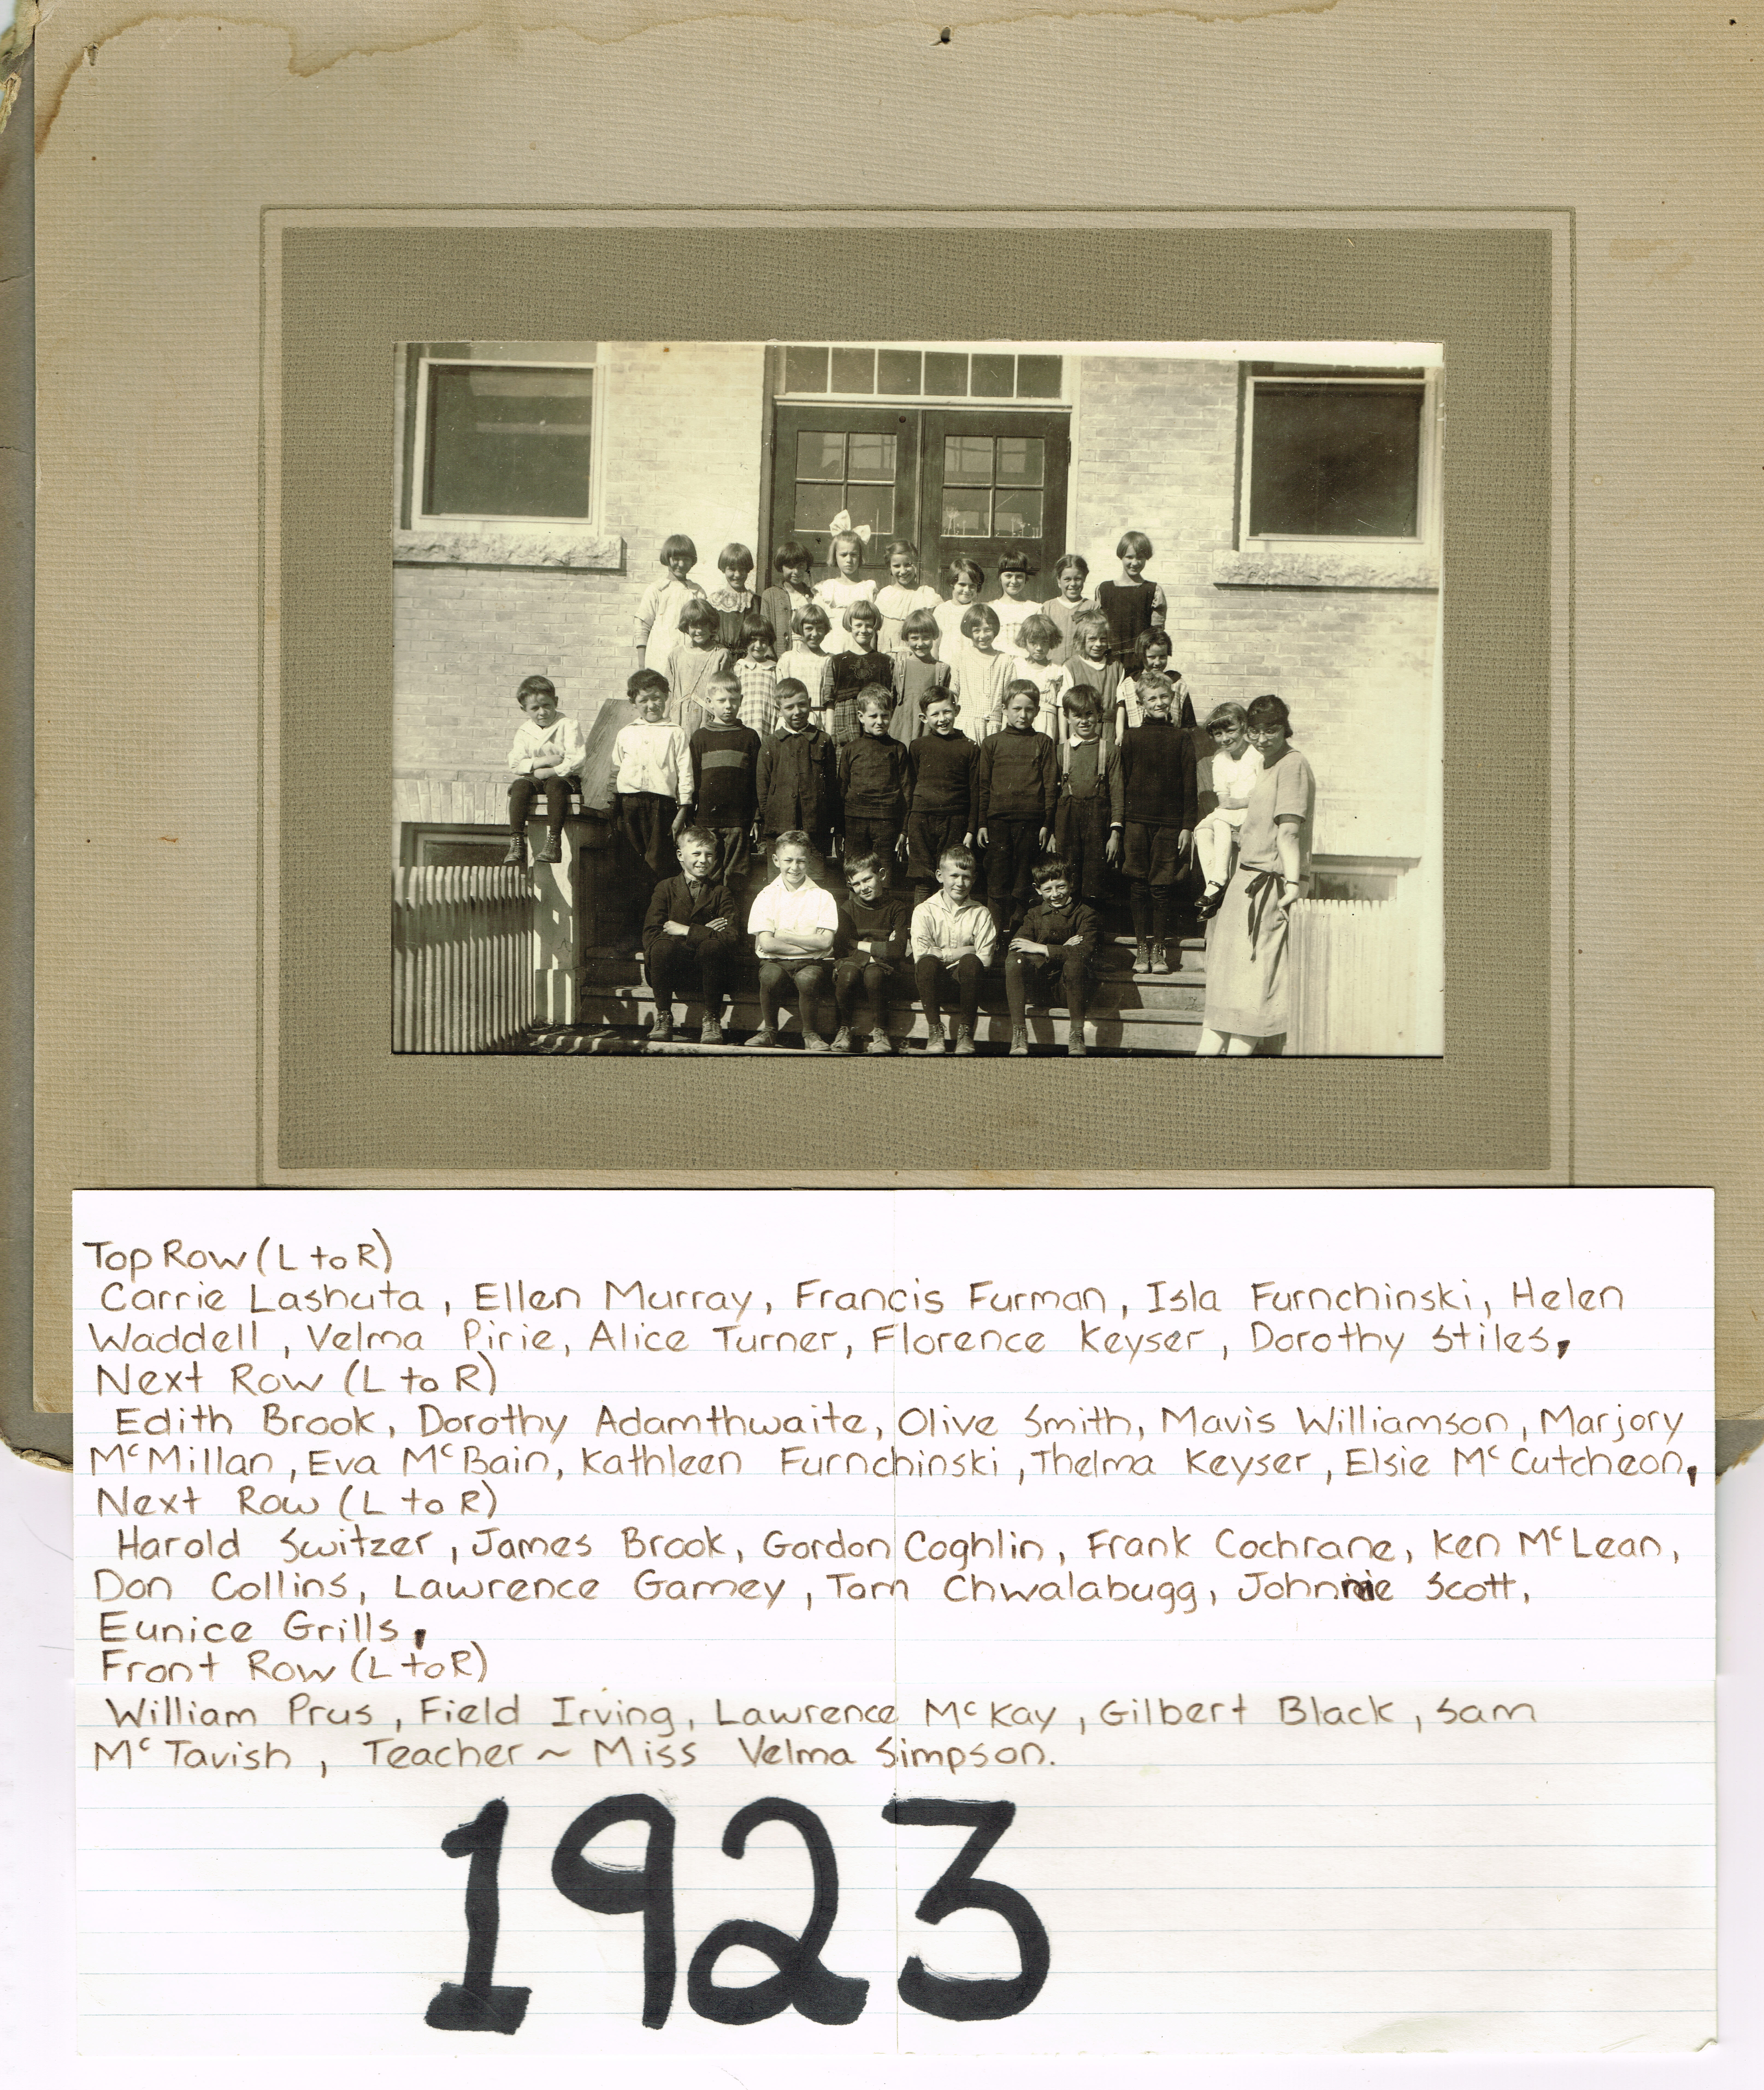 Top Row (L to R)
Carrie Lashuta, Ellen Murray, Francis Furman, Isla Furnchinski, Helen
Waddell, Velma Pirie, Alice Turner, Florence Keyser, Dorothy Stiles,
Next Row (L to R)
Edith Brook, Dorothy Adamthwaite, Olive Smith, Mavis Williamson, Marjory
McMillan, Eva McBain, Kathleen Furnchinski, Thelma Keyser, Elsie McCutcheon,
Next Row (L to R)
Harold Switzer, James Brook, Gordon Coghlin, Frank Cochrane, Ken McLean,
Don Collins, Lawrence Gamey, Tom Chwalabugg, Johnnie Scott,
Eunice Grills,
Front Row (L to R)
William Prus, Field Irving, Lawrence McKay, Gilbert Black, Sam
McTavish, Teacher ~ Miss Velma Simpson.
1923